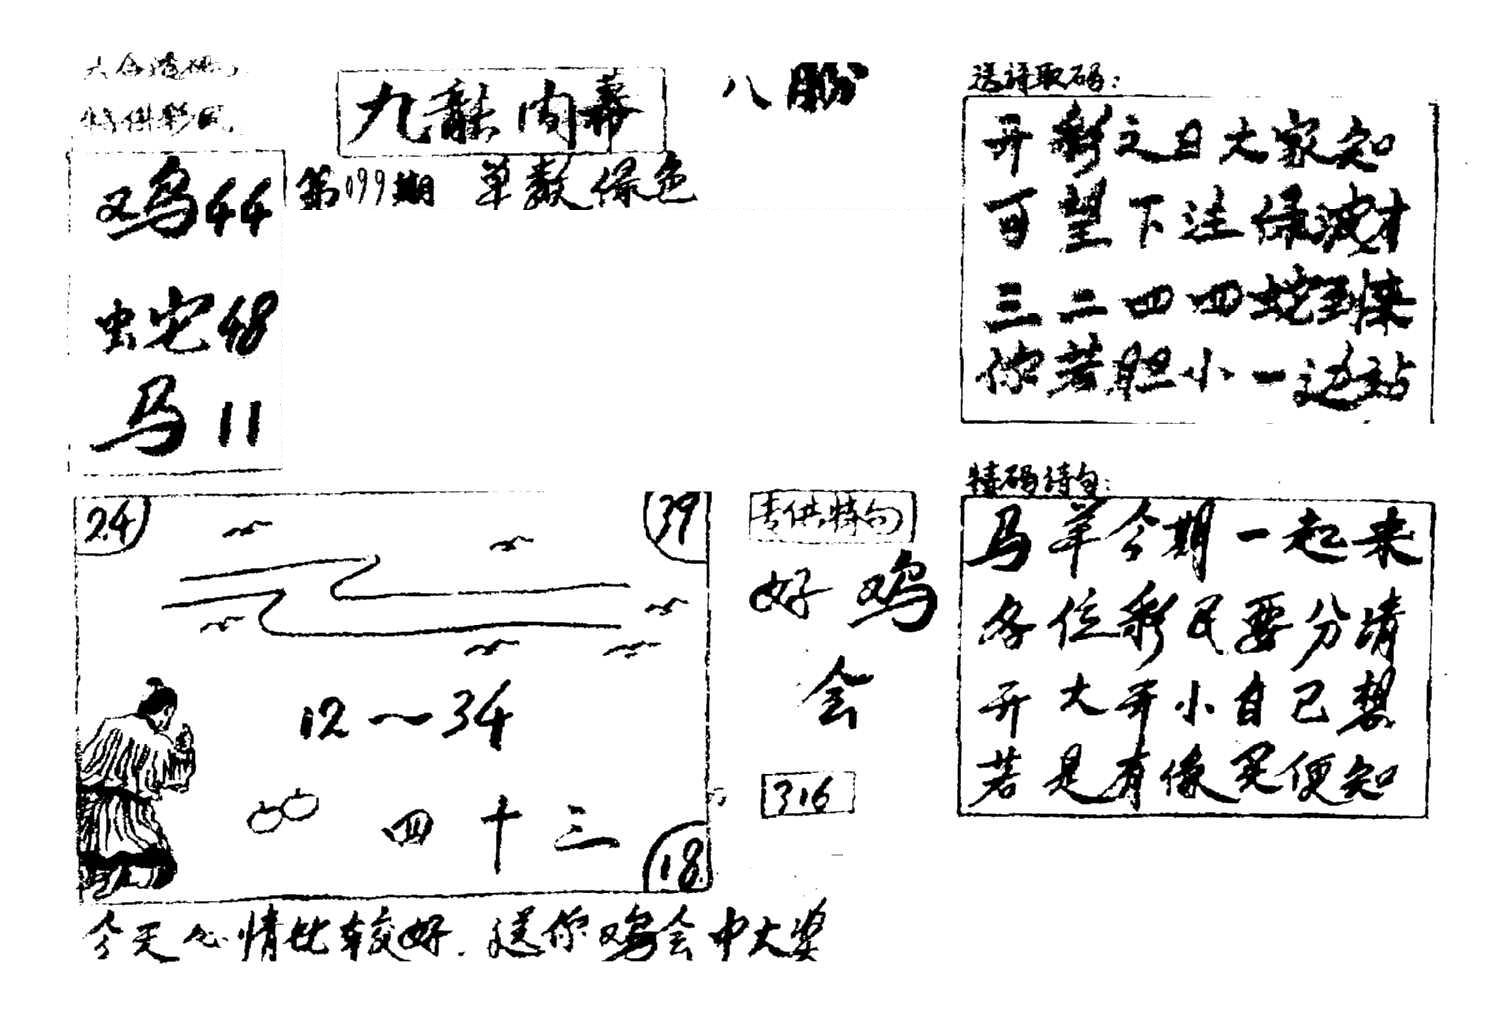 六合透码
特供彩民
九龍内幕
八肖
第099期 单数绿色
鸡44
蛇48
马11
送詩取码:
开彩之日大家知
可望下注绿波才
三二四四蛇到来
你若胆小一边站
特码诗句:
马羊今期一起来
各位彩民要分清
开大开小自己想
若是有缘买便知
24
39
12~34
四十三
18
专供特句
好鸡
会
316
今天心情比较好.送你鸡会中大奖